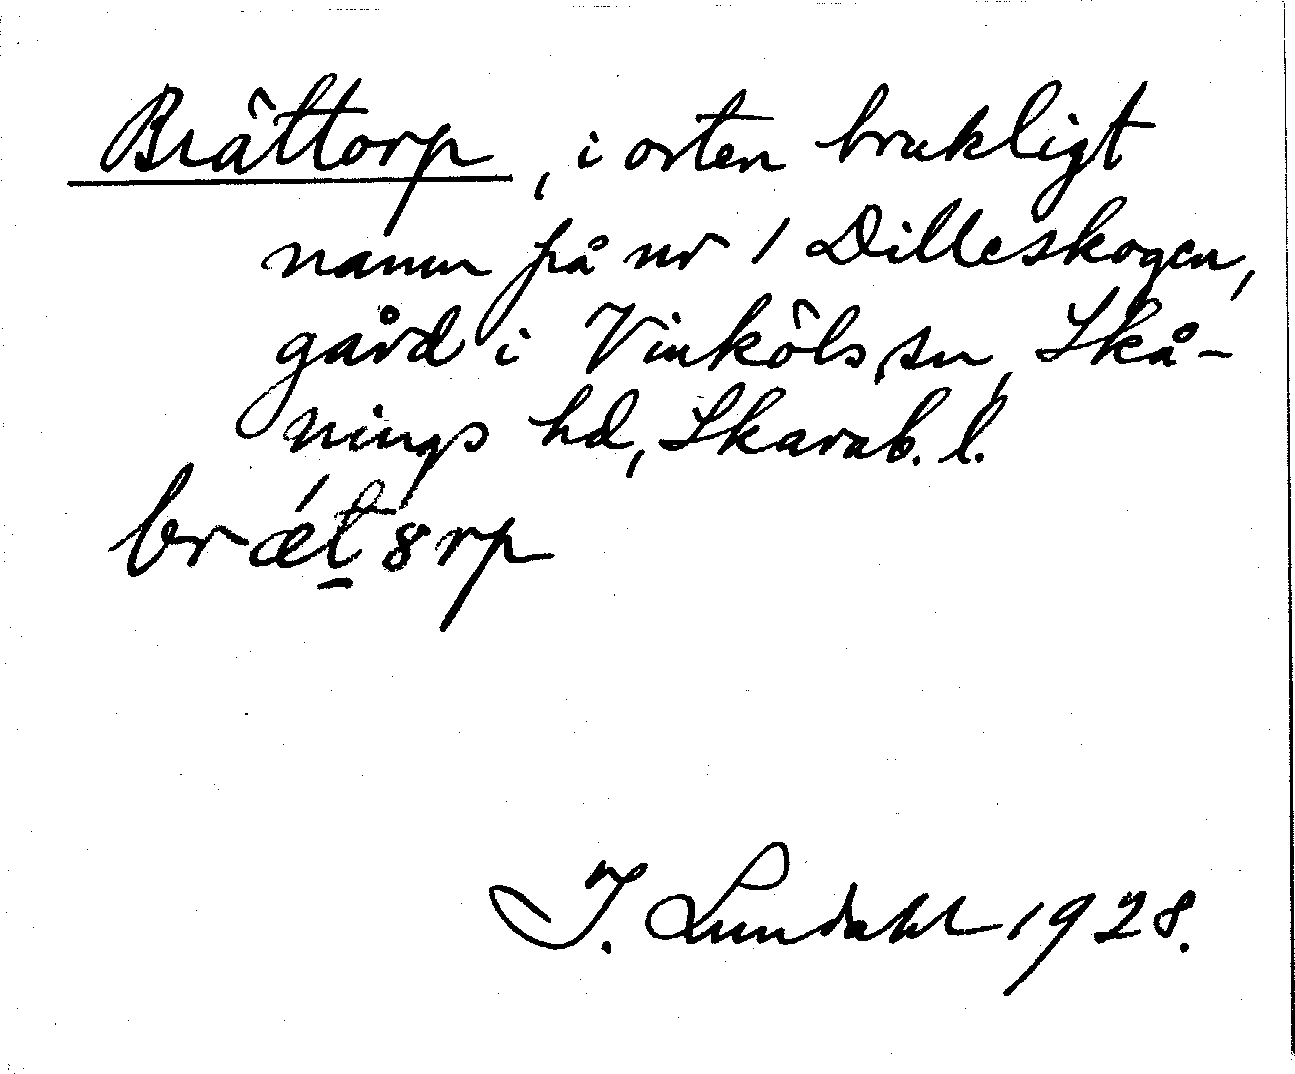 Brättorp, i orten brukligt
namn på nr 1 Dilleskogen,
gård i Vinköls sn, Skå-
nings hd, Skarab. l.
brǽt̲8rp
I. Lundahl 1928.